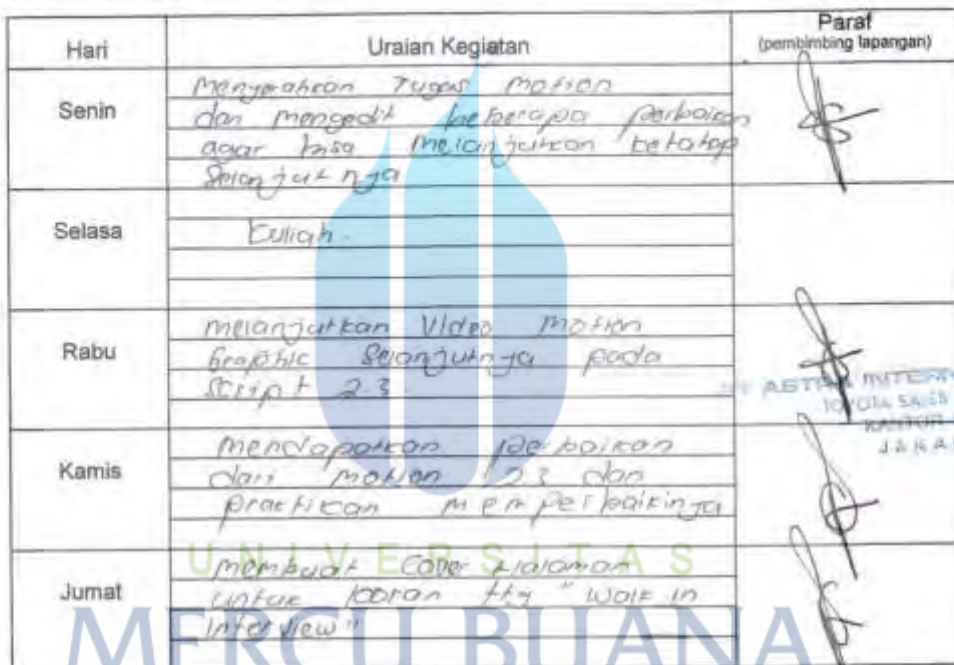 Hari Uraian Kegiatan Paraf
(pembimbing lapangan)
Senin
Menyerahkan Tugas motion
dan mengedit beberapa perbaikan
agar bisa melanjutkan ketahap
Selanjutnya
Selasa
Kuliah.
Rabu
melanjutkan Video motion
Graphic Selanjutnya pada
Script 2.3.
Kamis
mendapatkan perbaikan
dari motion 2.3 dan
praktikan memperbaikinya
Jumat
membuat Cover Halaman
untuk koran ttg "Walk in
Interview"
ASTRA INTERN
TOYOTA SALES
KANTOR
JAKA
UNIVERSITAS
MERCU BUANA